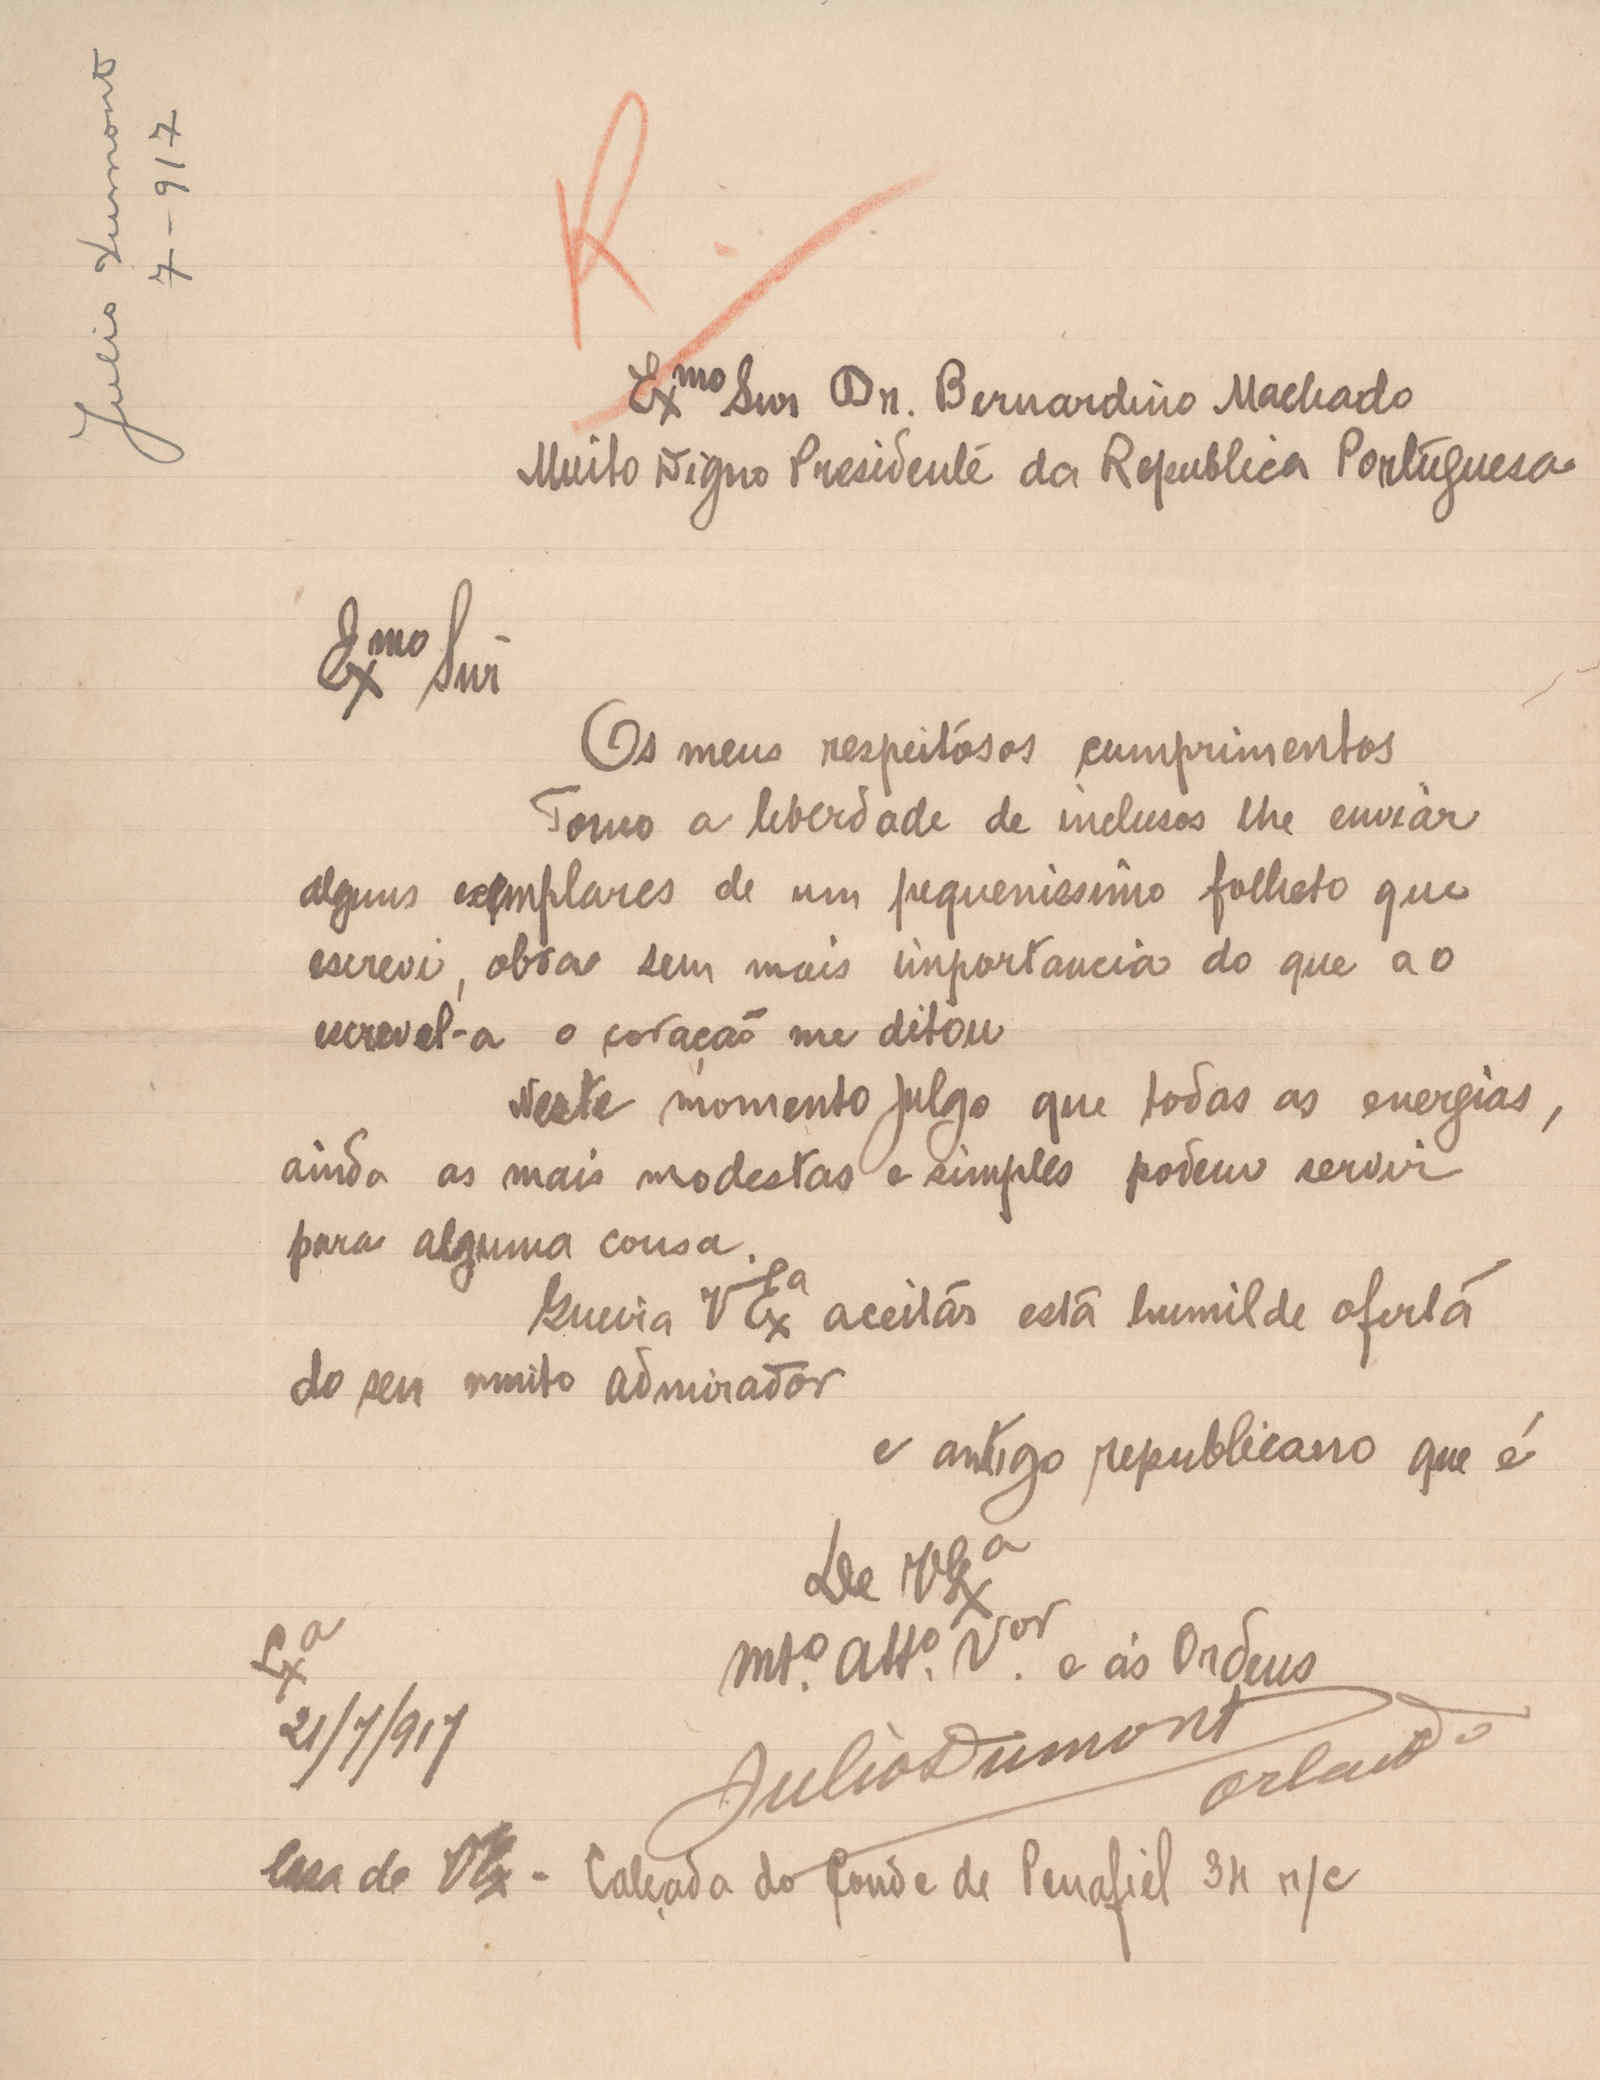 Julio Dumont
7-917
R.
Exmo Snr Dr. Bernardino Machado
Muito Digno Presidente da Republica Portuguesa
Exmo Snr
Os meus respeitosos cumprimentos
Tomo a liberdade de inclusos lhe enviar
alguns exemplares de um pequenissimo folheto que
escrevi, obra sem mais importancia do que ao
escrevel-a o coração me ditou
Neste momento julgo que todas as energias,
ainda as mais modestas e simples podem servir
para alguma cousa.
Queira V Exa aceitar esta humilde oferta
do seu muito admirador
e antigo republicano que é
De V Exa
Mto. Atto. Vor. e ás Ordens
Julio Dumont
Orlando
Lxa
21/7/917
Casa de V Ex - Calçada do Conde de Penafiel 34 r/c